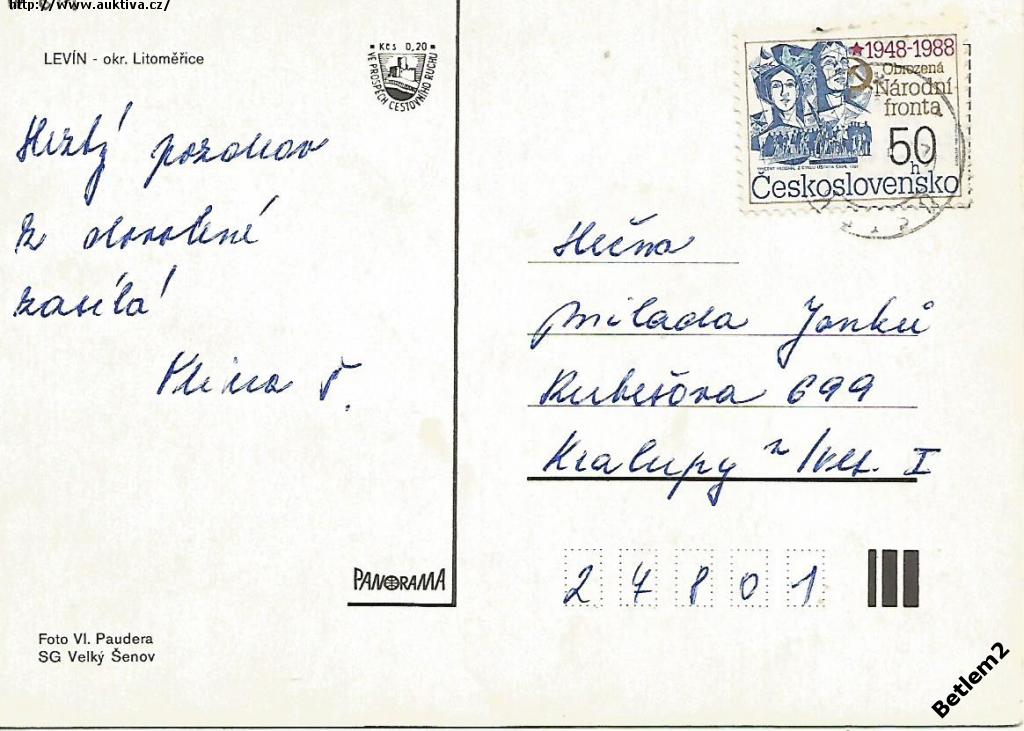 http://www.auktiva.cz/
LEVÍN - okr. Litoměřice
Kčs 0,20
VE PROSPĚCH CESTOVNÍHO RUCHU
Hezký pozdrav
z dovolené
zasílá
PANORAMA
Foto Vl. Paudera
SG Velký Šenov
1948-1988
Obrozená
Národní
fronta
50 h
Československo
Slečna
Milada Janků
Rubešova 699
Kralupy n/Vlt. I
27801
Betlem2